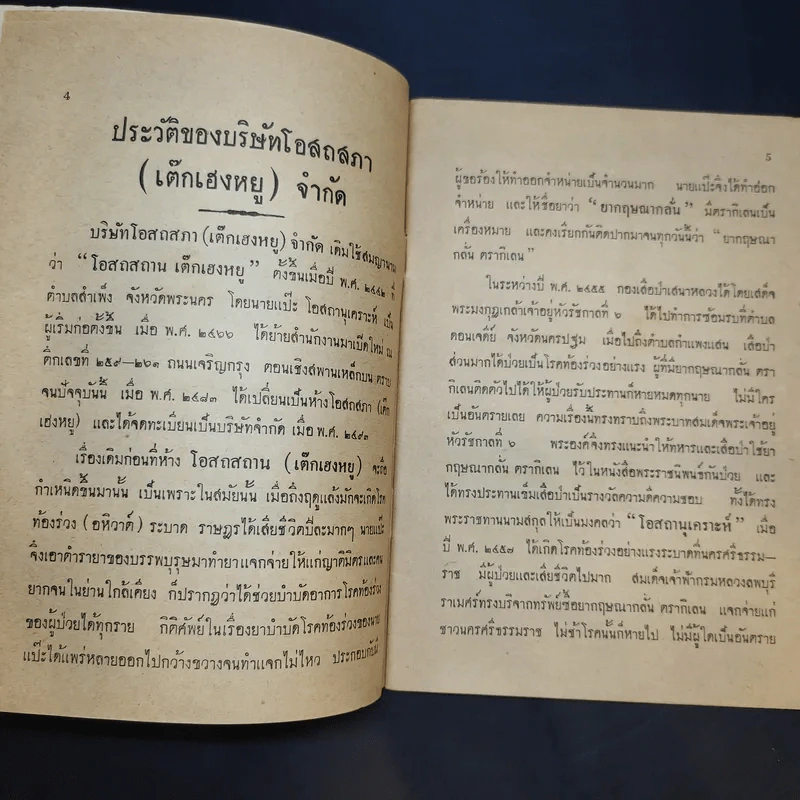 4
ประวัติของบริษัทโอสถสภา
(เต๊กเฮงหยู) จำกัด
บริษัทโอสถสภา (เต๊กเฮงหยู) จำกัด เดิมใช้สมญานาม
ว่า “โอสถสถาน เต๊กเฮงหยู” ตั้งขึ้นเมื่อปี พ.ศ. ๒๔๔๒ ที่
ตำบลสำเพ็ง จังหวัดพระนคร โดยนายแป๊ะ โอสถานุเคราะห์ เป็น
ผู้เริ่มก่อตั้งขึ้น เมื่อ พ.ศ. ๒๔๖๖ ได้ย้ายสำนักงานมาเปิดใหม่ ณ
ตึกเลขที่ ๒๕๙—๒๖๑ ถนนเจริญกรุง ตอนเชิงสพานเหล็กบน ตราบ
จนปัจจุบันนี้ เมื่อ พ.ศ. ๒๔๘๓ ได้เปลี่ยนเป็นห้างโอสถสภา (เต๊ก
เฮงหยู) และได้จดทะเบียนเป็นบริษัทจำกัด เมื่อ พ.ศ. ๒๔๙๓
เรื่องเดิมก่อนที่ห้าง โอสถสถาน (เต๊กเฮงหยู) จะถือ
กำเหนิดขึ้นมานั้น เป็นเพราะในสมัยนั้น เมื่อถึงฤดูแล้งมักจะเกิดโรค
ท้องร่วง (อหิวาต์) ระบาด ราษฎรได้เสียชีวิตปีละมากๆ นายแป๊ะ
จึงเอาตำรายาของบรรพบุรุษมาทำยาแจกจ่ายให้แก่ญาติมิตรและคน
ยากจนในย่านใกล้เคียง ก็ปรากฏว่าได้ช่วยบำบัดอาการโรคท้องร่วง
ของผู้ป่วยได้ทุกราย กิติศัพย์ในเรื่องยาบำบัดโรคท้องร่วงของนาย
แป๊ะได้แพร่หลายออกไปกว้างขวางจนทำแจกไม่ไหว ประกอบกับมี
5
ผู้ขอร้องให้ทำออกจำหน่ายเป็นจำนวนมาก นายแป๊ะจึงได้ทำออก
จำหน่าย และให้ชื่อยาว่า “ยากฤษณากลั่น” มีตรากิเลนเป็น
เครื่องหมาย และคงเรียกกันติดปากมาจนทุกวันนี้ว่า “ยากฤษณา
กลั่น ตรากิเลน”
ในระหว่างปี พ.ศ. ๒๔๕๕ กองเสือป่าเสนาหลวงได้โดยเสด็จ
พระมงกุฎเกล้าเจ้าอยู่หัวรัชกาลที่ ๖ ได้ไปทำการซ้อมรบที่ตำบล
ดอนเจดีย์ จังหวัดนครปฐม เมื่อไปถึงตำบลกำแพงแสน เสือป่า
ส่วนมากได้ป่วยเป็นโรคท้องร่วงอย่างแรง ผู้ที่มียากฤษณากลั่น ตรา
กิเลนติดตัวไปได้ให้ผู้ป่วยรับประทานก็หายหมดทุกนาย ไม่มีใคร
เป็นอันตรายเลย ความเรื่องนี้ทรงทราบถึงพระบาทสมเด็จพระเจ้าอยู่
หัวรัชกาลที่ ๖ พระองค์จึงทรงแนะนำให้ทหารและเสือป่าใช้ยา
กฤษณากลั่น ตรากิเลน ไว้ในหนังสือพระราชนิพนธ์กันป่วย และ
ได้ทรงประทานเข็มเสือป่าเป็นรางวัลความดีความชอบ ทั้งได้ทรง
พระราชทานนามสกุลให้เป็นมงคลว่า “โอสถานุเคราะห์” เมื่อ
ปี พ.ศ. ๒๔๕๗ ได้เกิดโรคท้องร่วงอย่างแรงระบาดที่นครศรีธรรม—
ราช มีผู้ป่วยและเสียชีวิตไปมาก สมเด็จเจ้าฟ้ากรมหลวงลพบุรี
ราเมศร์ทรงบริจาคทรัพย์ซื้อยากฤษณากลั่น ตรากิเลน แจกจ่ายแก่
ชาวนครศรีธรรมราช ไม่ช้าโรคนั้นก็หายไป ไม่มีผู้ใดเป็นอันตราย